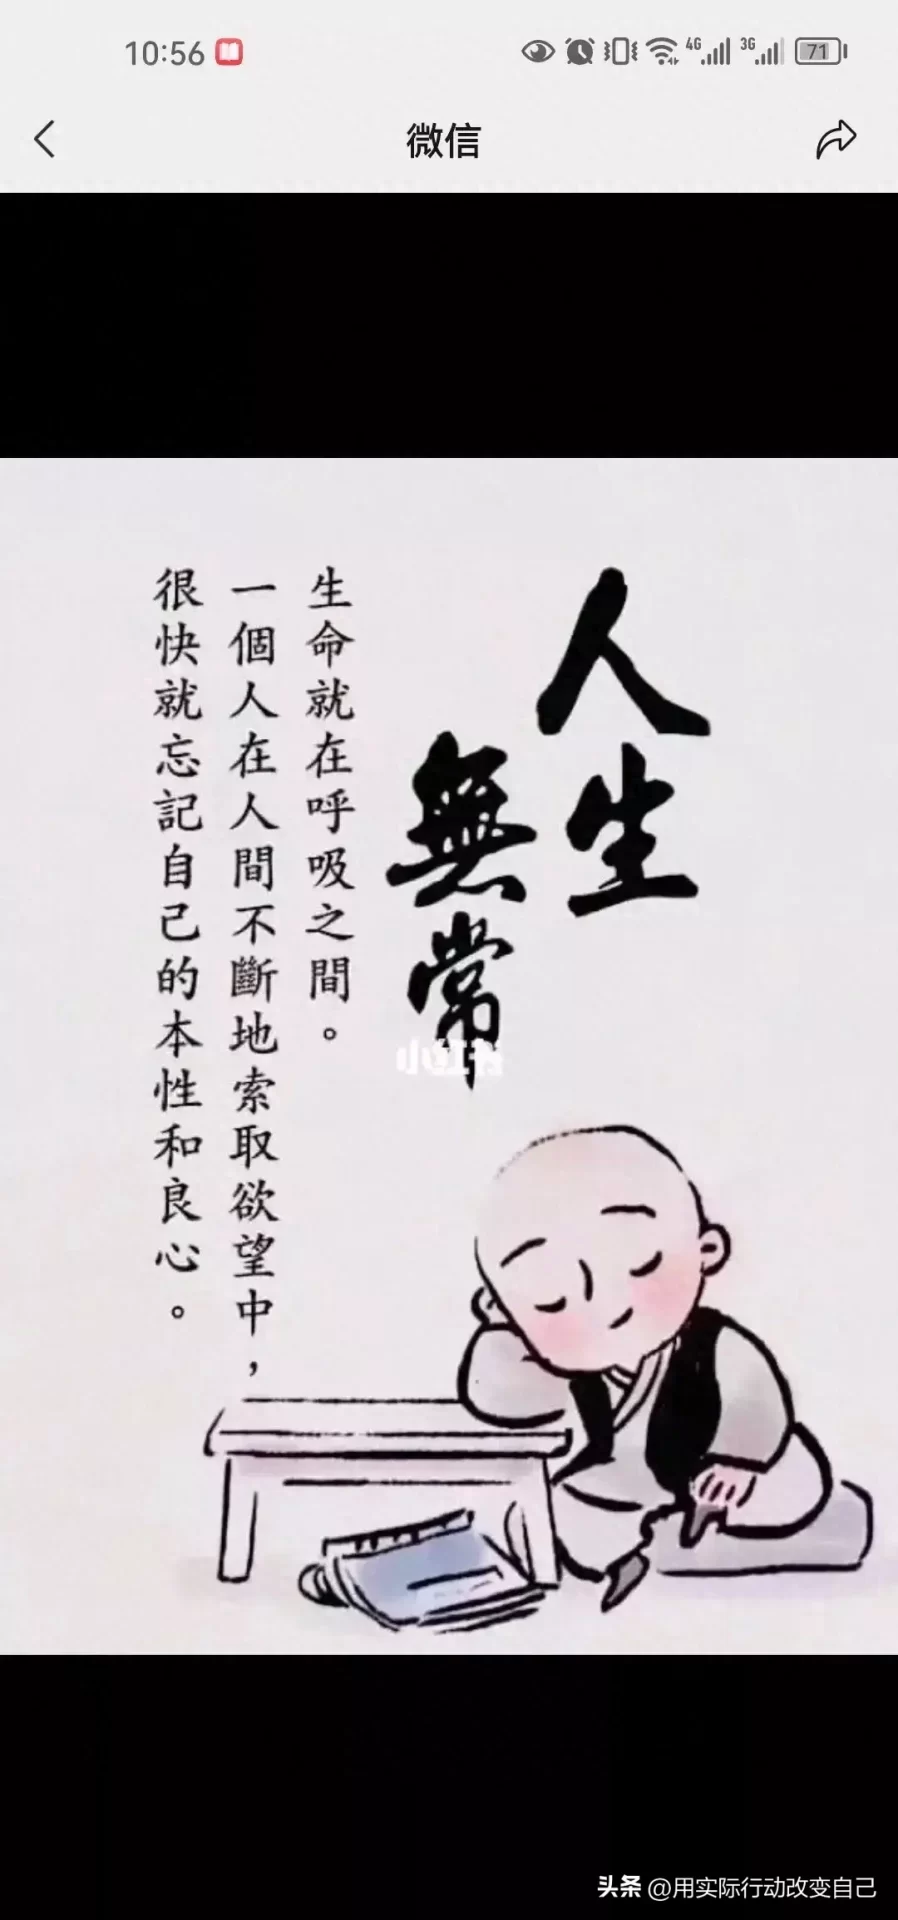 10:56
4G
3G
71
微信
人生
無常
生命就在呼吸之間。
一個人在人間不斷地索取欲望中，
很快就忘記自己的本性和良心。
小红书
头条 @用实际行动改变自己